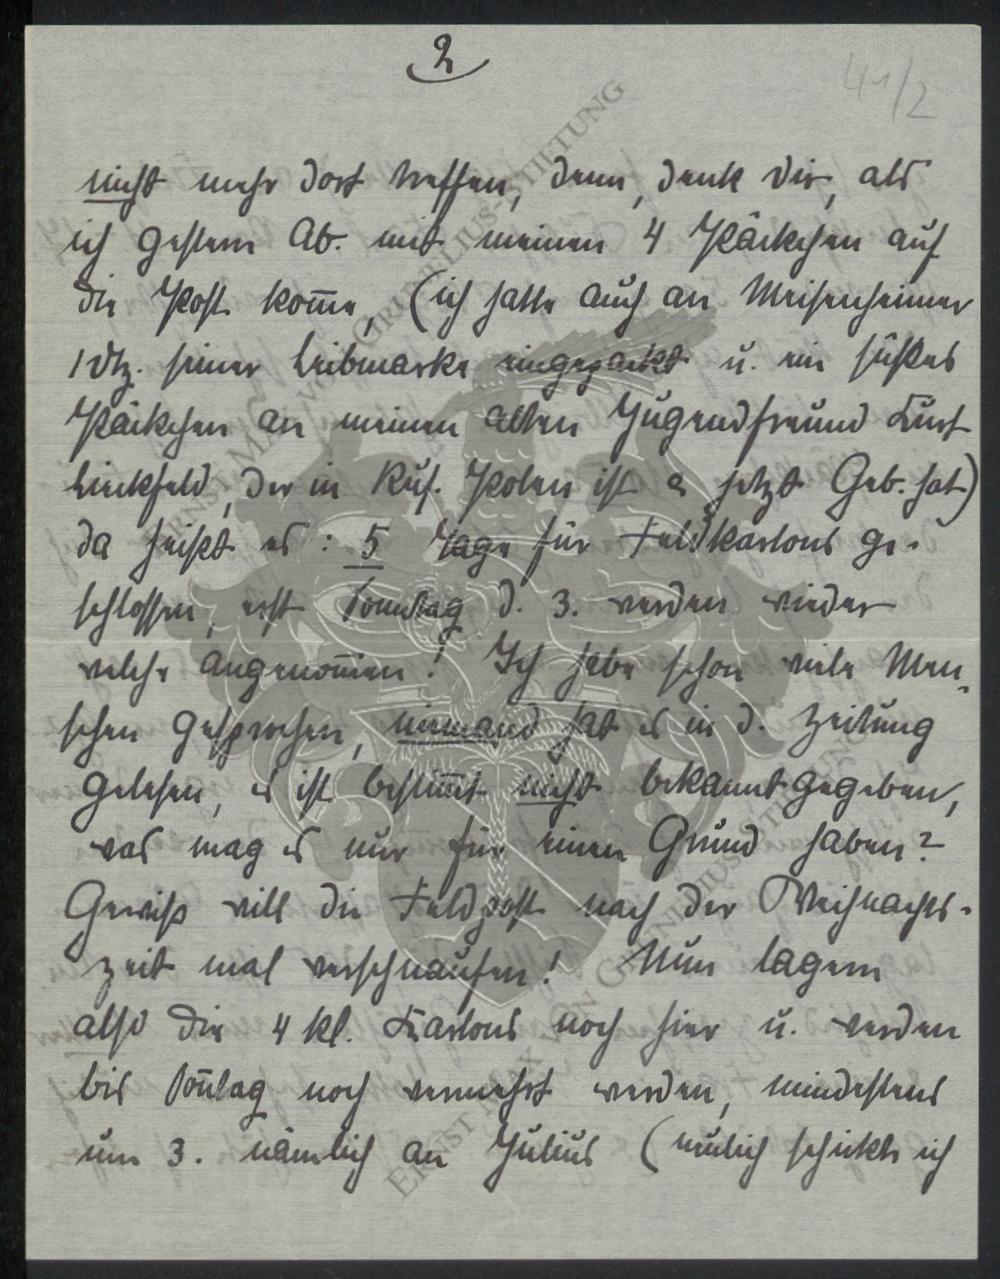 2
41/2
nicht mehr dort treffen, denn, denk dir, als
ich gestern Ab. mit meinen 4 Päckchen auf
die Post kom̄e, (ich hatte auch an Meisenheimer
1 Dtz. seiner Leibmarke eingepackt u. ein süßes
Päckchen an meinen alten Jugendfreund Kurt
Linkfeld, der in Ruß. Polen ist & jetzt Geb. hat)
da heißt es: 5 Tage für Feldkartons ge-
schlossen, erst Sonntag d. 3. werden wieder
welche angenom̄en! Ich habe schon viele Men-
schen gesprochen, niemand hat es in d. Zeitung
gelesen, es ist bestim̄t nicht bekannt gegeben,
was mag es nur für einen Grund haben?
Gewiß will die Feldpost nach der Weihnachts-
zeit mal verschnaufen! Nun lagern
also die 4 kl. Kartons noch hier u. werden
bis Son̄tag noch vermehrt werden, mindestens
um 3. nämlich an Julius (neulich schickte ich
ERNST MAX VON GRUNELIUS-STIFTUNG
ERNST MAX VON GRUNELIUS-STIFTUNG